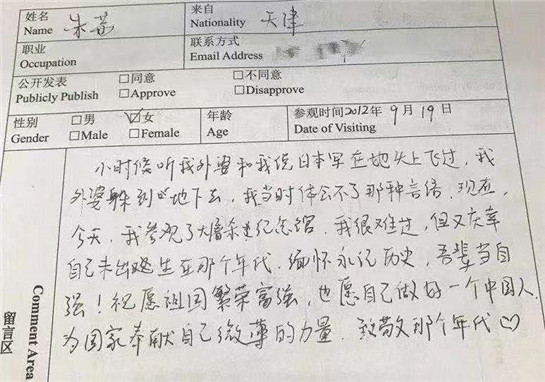 姓名 朱 来自 天津
Name Nationality
职业 联系方式
Occupation Email Address
公开发表 □同意 □不同意
Publicly Publish □Approve □Disapprove
性别 □男 ☑女 年龄 参观时间2012年9月19日
Gender □Male □Female Age Date of Visiting
小时候听我外婆和我说日本军在地头上飞过,我
外婆躲到地下去,我当时体会不了那种言语.现在,
今天,我参观了大屠杀纪念馆,我很难过,但又庆幸
自己未出生在那个年代.缅怀永记历史,吾辈当自
强!祝愿祖国繁荣富强,也愿自己做好一个中国人
为国家奉献自己微薄的力量.致敬那个年代♡
留言区 Comment Area